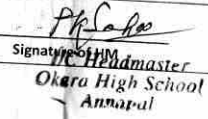 Signature of HM
I/C Headmaster
Okara High School
Annapal